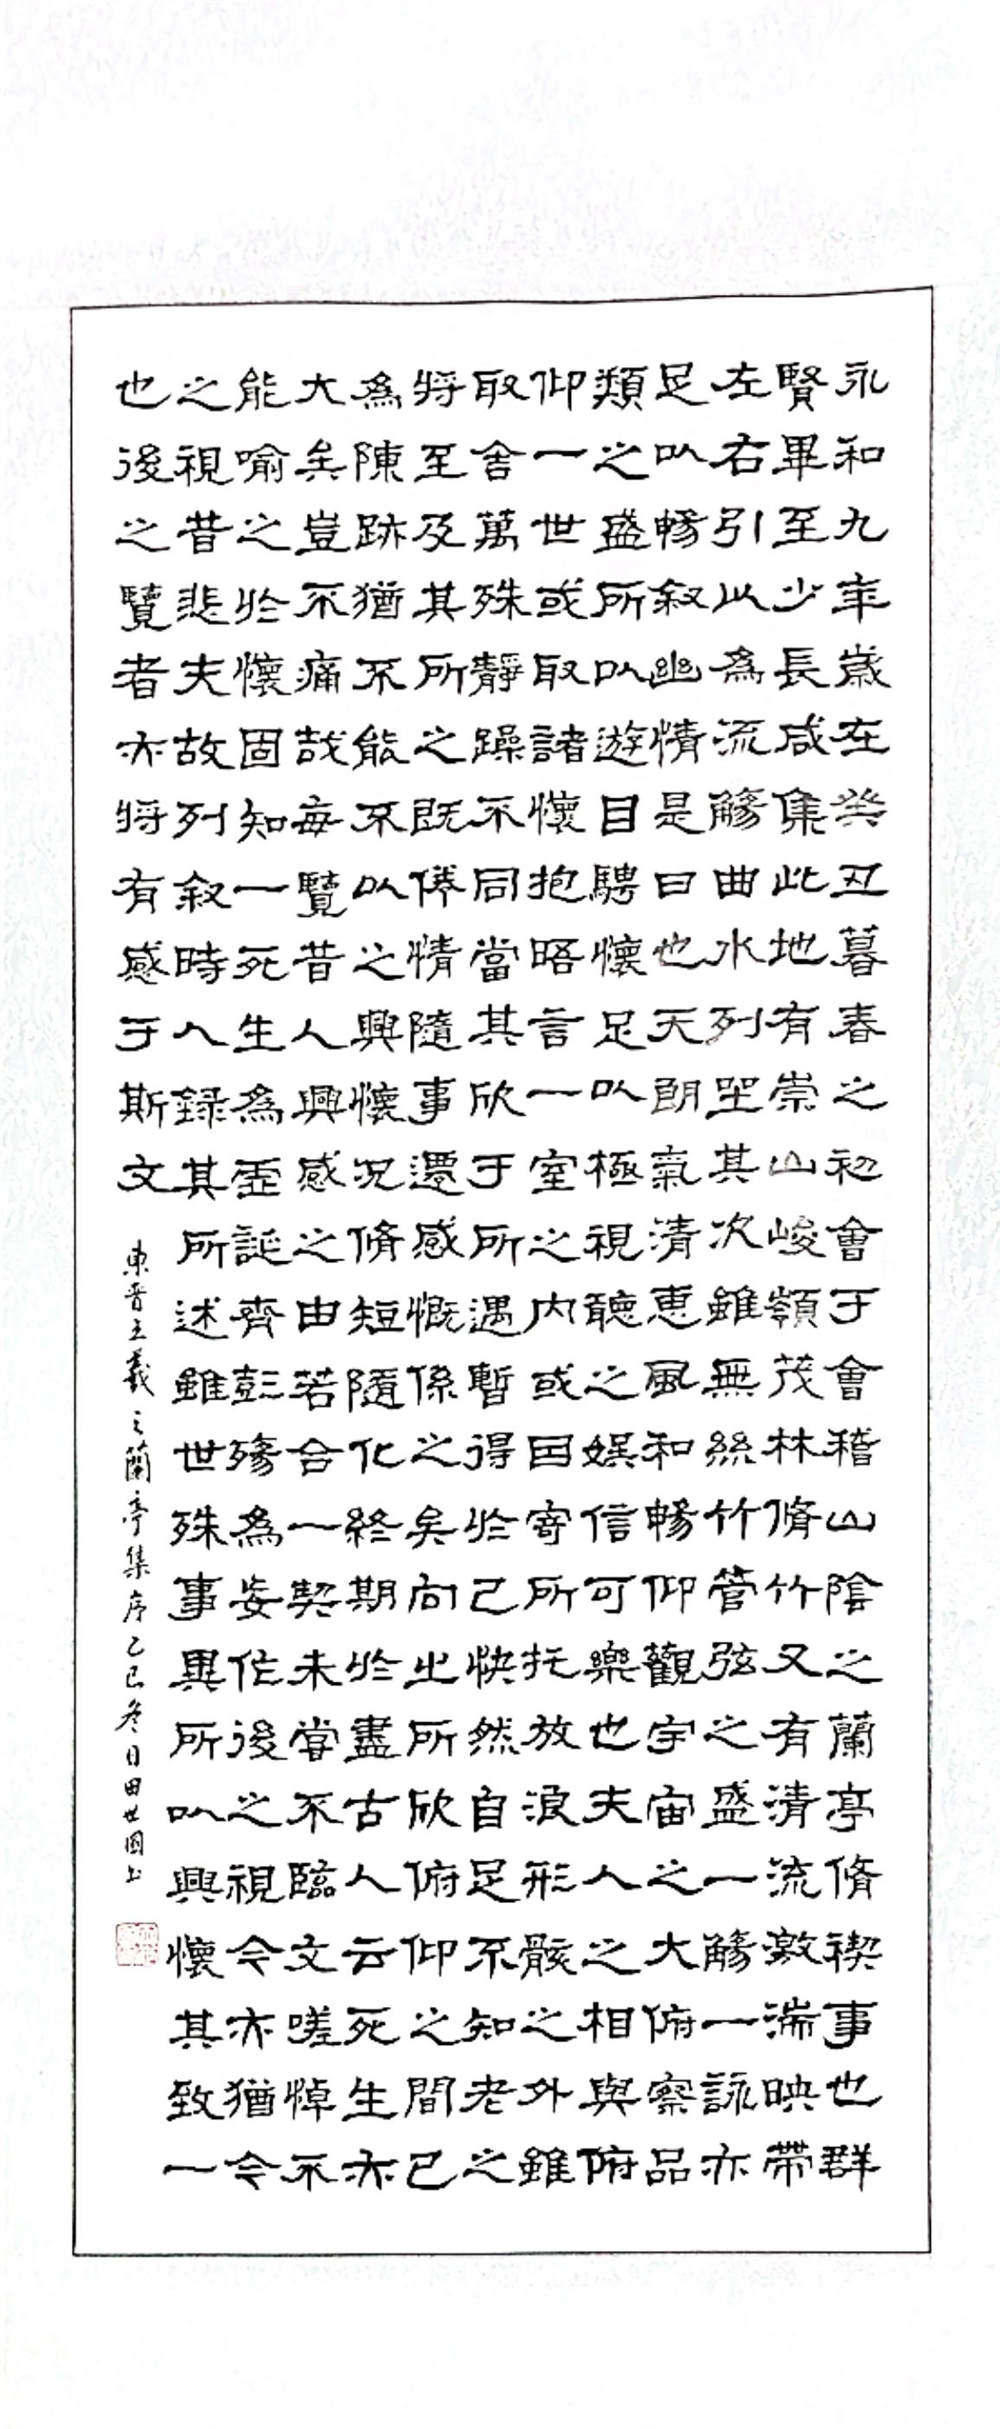 永和九年歲在癸丑暮春之初會于會稽山陰之蘭亭脩禊事也群
賢畢至少長咸集此地有崇山峻嶺茂林脩竹又有清流激湍映帶
左右引以為流觴曲水列坐其次雖無絲竹管弦之盛一觴一詠亦
足以暢叙幽情是日也天朗氣清惠風和暢仰觀宇宙之大俯察品
類之盛所以遊目騁懷足以極視聽之娛信可樂也夫人之相與俯
仰一世或取諸懷抱晤言一室之內或因寄所托放浪形骸之外雖
取舍萬殊靜躁不同當其欣于所遇暫得於己快然自足不知老之
將至及其所之既倦情隨事遷感慨係之矣向之所欣俯仰之間已
為陳跡猶不能不以之興懷況脩短隨化終期於盡古人云死生亦
大矣豈不痛哉每覽昔人興感之由若合一契未嘗不臨文嗟悼不
能喻之於懷固知一死生為虛誕齊彭殤為妄作後之視今亦猶今
之視昔悲夫故列叙時人録其所述雖世殊事異所以興懷其致一
也後之覽者亦將有感于斯文
東晋王羲之蘭亭集序乙巳冬日田世國书